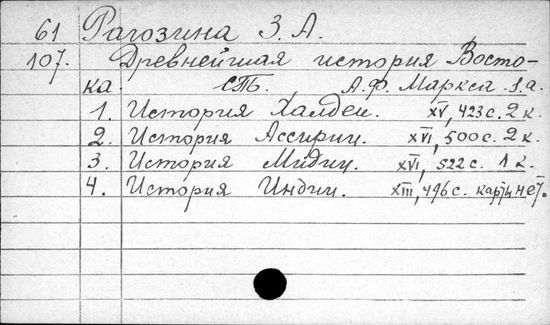 61 Рагозина З. А.
107. Древнейшая история Восто-
ка. СПБ. А.Ф. Маркса. s.a.
1. История Халдеи. XV, 423 с. 2 к.
2. История Ассирии. XVI, 500 с. 2 к.
3. История Мидии. XVI, 522 с. 1 к.
4. История Индии. XIII, 496 с. карт нет.